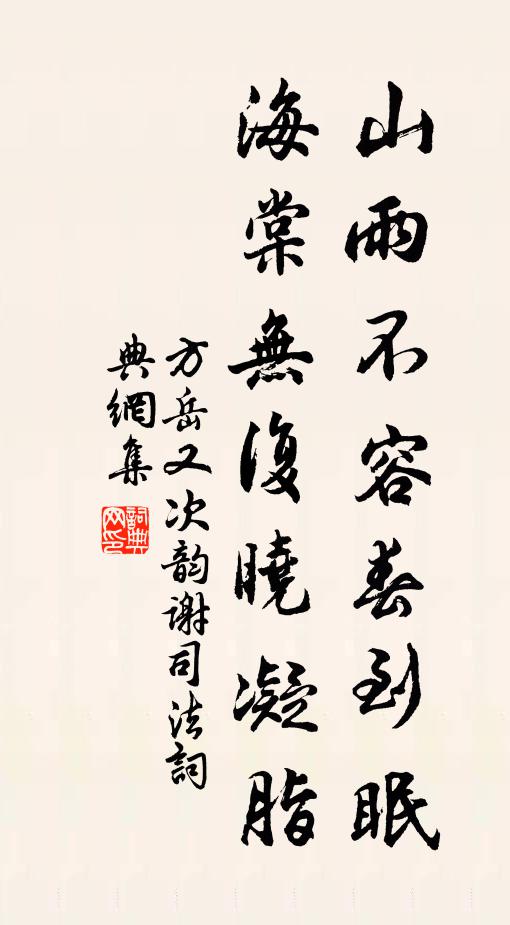 山雨不容春到眠
海棠無復曉凝脂
方岳又次韵謝司法詞
典網集
詞典網印